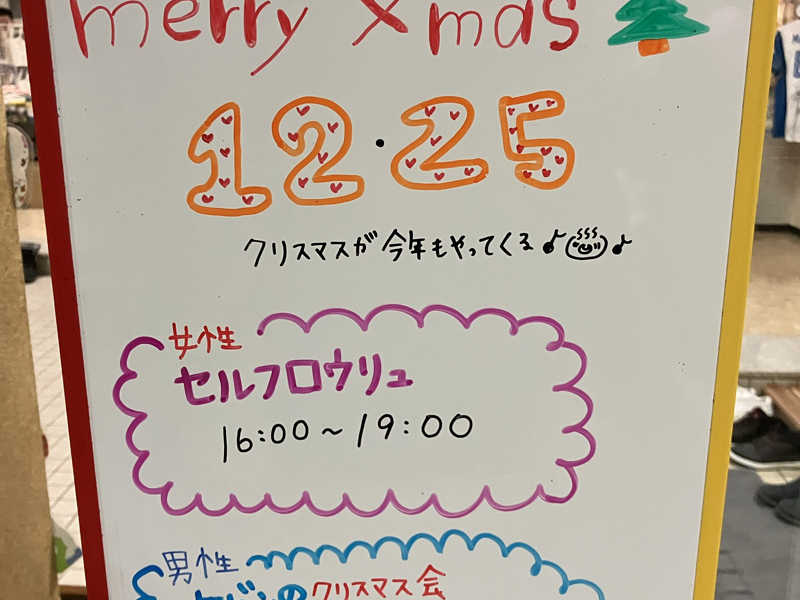 merry Xmas
12・25
クリスマスが今年もやってくる♪♨♪
女性
セルフロウリュ
16:00〜19:00
男性
クリスマス会